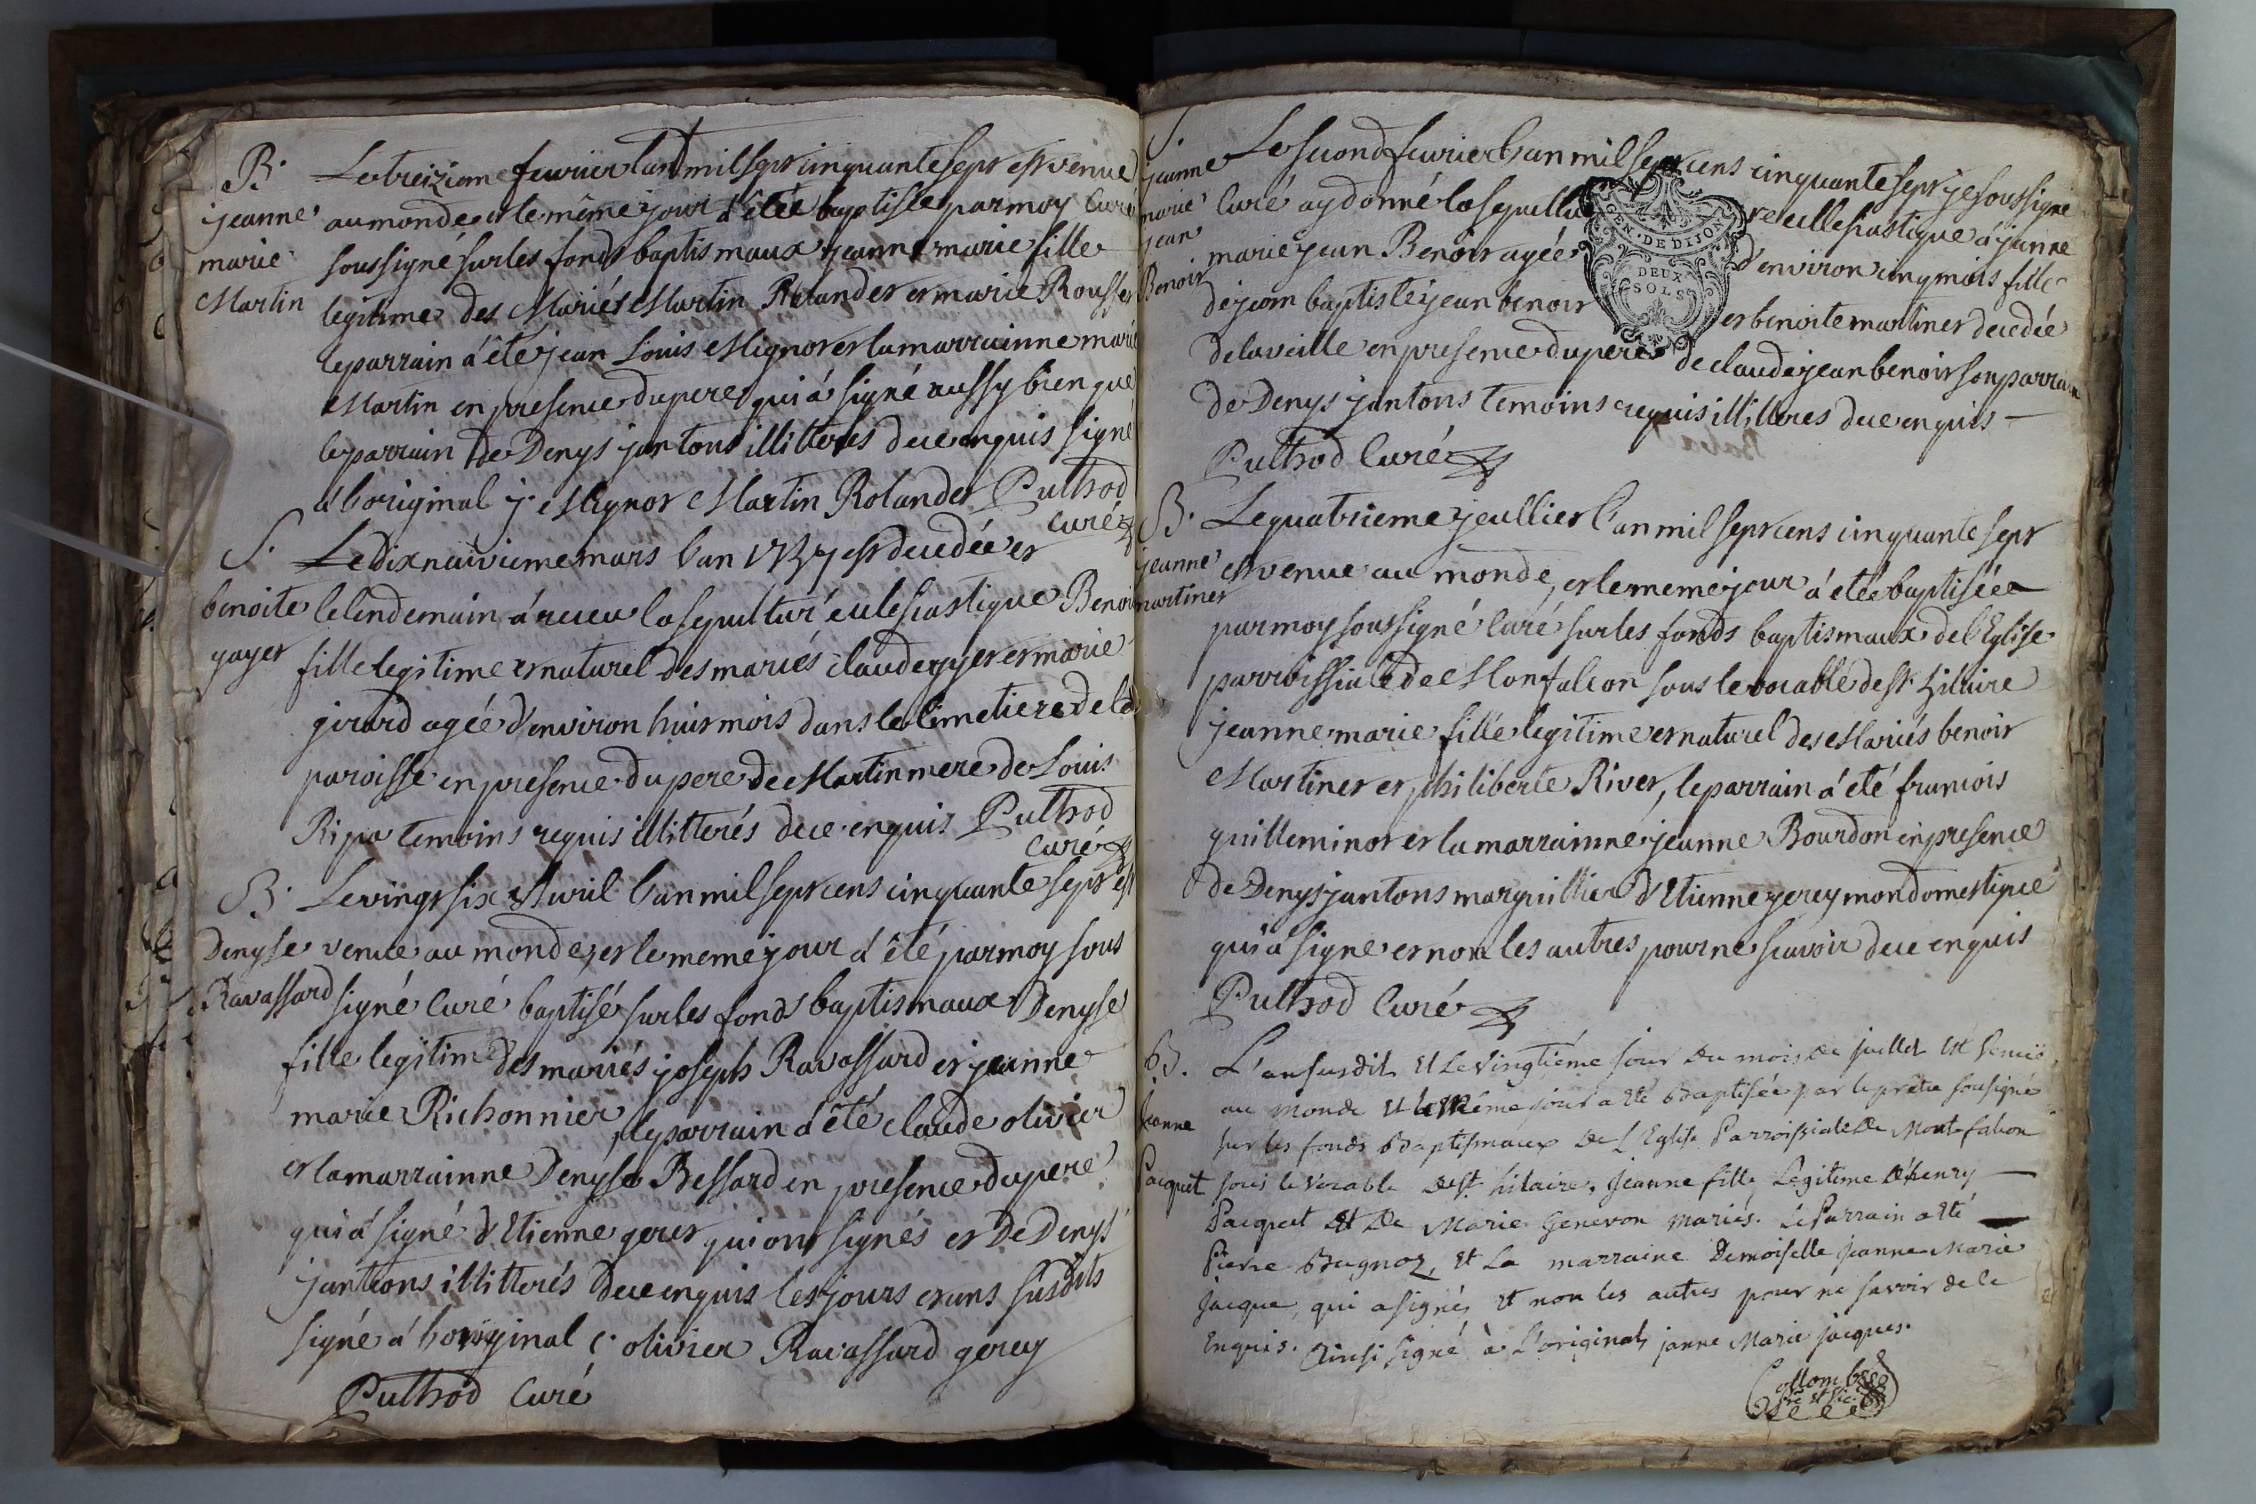 B.
jeanne
marie
Martin
Le treiziem fevrier l'and mil sept cinquante sept est venue
au monde et le même jour á étéé baptisée par moy Curé
soussigné sur les fonds baptismaux jeanne marie fille
legitime des Mariés Martin Rolandet et marie Rousset
le parrain á été jean Louis Mignot et la marrainne marie
Martin en presence du pere qui á signé aussy bien que
le parrain de Denys jantons illitterés de ce enquis signé
á l'original j. Mignot Martin Rolandet Puthod
Curé
S.
benoite
gayet
Le dix naivieme mars l'an 1757 est decedée et
le lendemain á receu la sepultur eclesiastique Benoite
fille legitime et naturel des mariés claude gyet et marie
girard agée d'environ huit mois dans le cimetiere de la
paroisse en presence du pere de Martin mere de Louis
Ripa temoins requis illitterés de ce enquis Puthod
Curé
B.
Denyse
Ravassard
Le vingt six Avril l'an mil sept cens cinquante sept est
venue au monde, et le meme jour á été par moy sous
signé Curé baptisé sur les fonds baptismaux Denyse
fille legitime des mariés joseph Ravassard et jeanne
marie Richonnier, le parrain á été claude olivier
et la marrainne Denyse Bessard en presence du pere
qui á signé d'Etienne gerey qui ont signés et De Denys
jantions illitterés de ce enquis les jours et ans susdits
signé á l'original C. olivier Ravassard gerey
Puthod Curé
S.
jeanne
marie
jean
Benoit
Le second fevrier l'an mil sept cens cinquante sept je soussigné
Curé ay donné la sepulture ecclesiastique á jeanne
marie jean Benoit agée d'environ cinq mois fille
de jean baptiste jean benoit et benoite martinet decedée
de la veille en presence du pere de claude jean benoit son parrain
de Denys jantons temoins requis illitteres de ce enquis
Puthod Curé
GEN. DE DIJON
DEUX
SOLS
B.
jeanne
martinet
Le quatrieme jeullier l'an mil sept cens cinquante sept
est venue au monde, et le meme jour á étéé baptisée
par moy soussigné Curé sur les fonds baptismaux de l'Eglise
parroissiale de Monfalcon sous le vocable de st. hilaire
jeanne marie fille legitime et naturel des Mariés benoit
Martinet et philiberte Rivet, le parrain á été francois
guilleminot et la marrainne jeanne Bourdon en presence
de Denys jantons marguillier d'Etienne gerey mon domestique
qui á signe et non les autres pour ne scavoir de ce enquis
Puthod Curé
B.
Jeanne
Pacquet
L'an susdit et le vingtiéme jour du mois de juillet est venuë
au monde et le même jour a eté baptisée par le prêtre sousigné
sur les fonds baptismaux de L'Eglise Parroissiale de Montfalcon
sous le vocable de st. hilaire, Jeanne fille Legitime d'henry
Pacquet et de Marie Genevon mariés. Le Parrain a eté
Pierre Bugnoz, et La marraine Demoiselle Jeanne Marie
Jacque, qui a signé, et non les autres pour ne savoir de ce
enquis. Ainsi signé à L'original, janne Marie jacques.
Collombet
prê et vic.